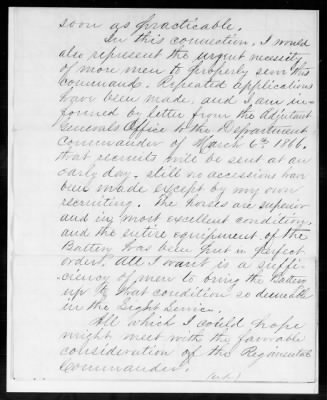 soon as practicable.
In this connection, I would
also represent the urgent necessity
of more men to properly serve this
command. Repeated applications
have been made, and I am in-
formed by letter from the Adjutant
Generals Office to the Department
Commander of March 6th 1866.
that recruits will be sent at an
early day. Still no accessions have
been made except by my own
recruiting. The horses are superior
and in most excellent condition,
and the entire equipment of the
Battery has been put in perfect
order. All I want is a suffi-
ciency of men to bring the Battery
up to that condition so desirable
in the Light Service.
All which I could hope
might meet with the favorable
consideration of the Regimental
Commander.